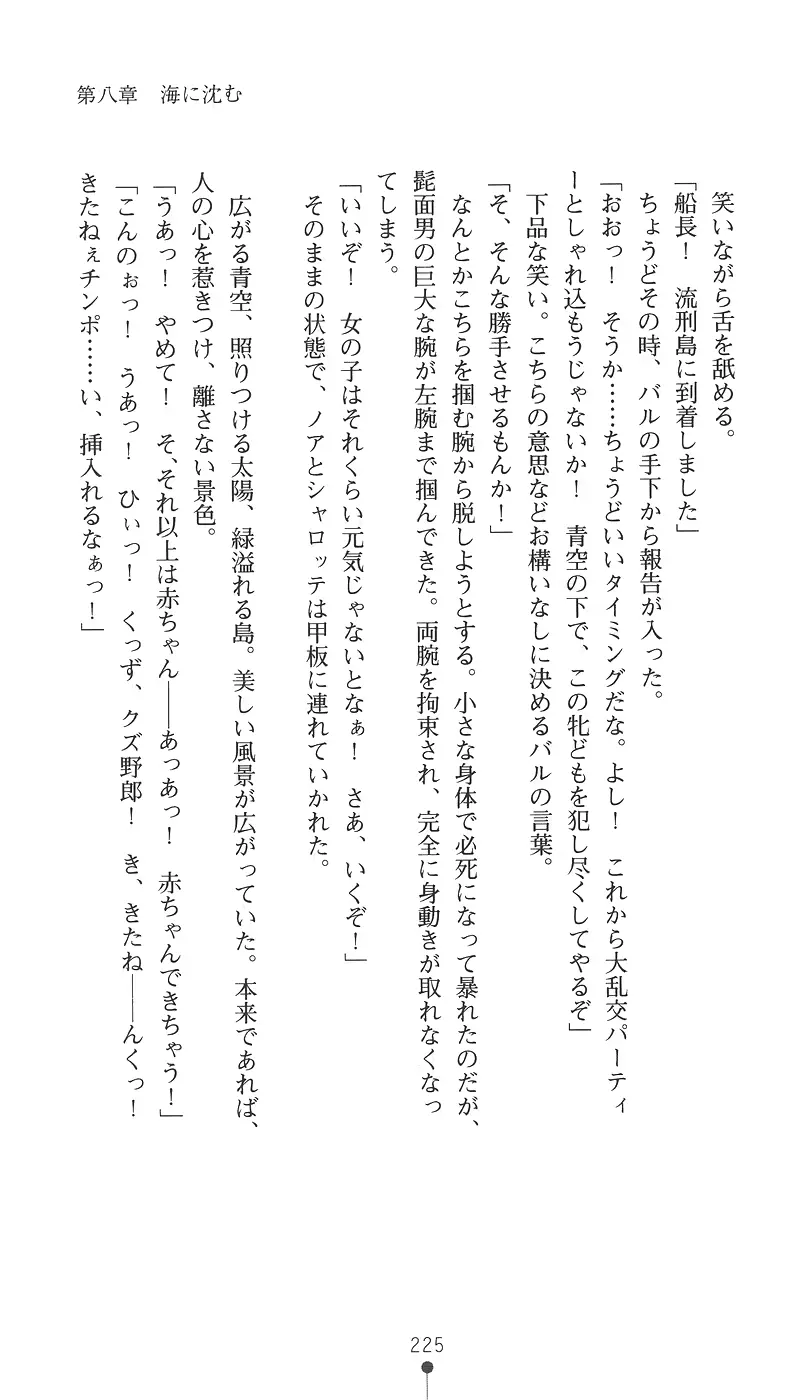 第八章　海に沈む
笑いながら舌を舐める。
「船長！　流刑島に到着しました」
ちょうどその時、バルの手下から報告が入った。
「おおっ！　そうか……ちょうどいいタイミングだな。よし！　これから大乱交パーティ
ーとしゃれ込もうじゃないか！　青空の下で、この牝どもを犯し尽くしてやるぞ」
下品な笑い。こちらの意思などお構いなしに決めるバルの言葉。
「そ、そんな勝手させるもんか！」
なんとかこちらを掴む腕から脱しようとする。小さな身体で必死になって暴れたのだが、
髭面男の巨大な腕が左腕まで掴んできた。両腕を拘束され、完全に身動きが取れなくなっ
てしまう。
「いいぞ！　女の子はそれくらい元気じゃないとなぁ！　さあ、いくぞ！」
そのままの状態で、ノアとシャロッテは甲板に連れていかれた。
広がる青空、照りつける太陽、緑溢れる島。美しい風景が広がっていた。本来であれば、
人の心を惹きつけ、離さない景色。
「うあっ！　やめて！　そ、それ以上は赤ちゃん――あっあっ！　赤ちゃんできちゃう！」
「こんのぉっ！　うあっ！　ひぃっ！　くっず、クズ野郎！　き、きたね――んくっ！
きたねぇチンポ……い、挿入れるなぁっ！」
225